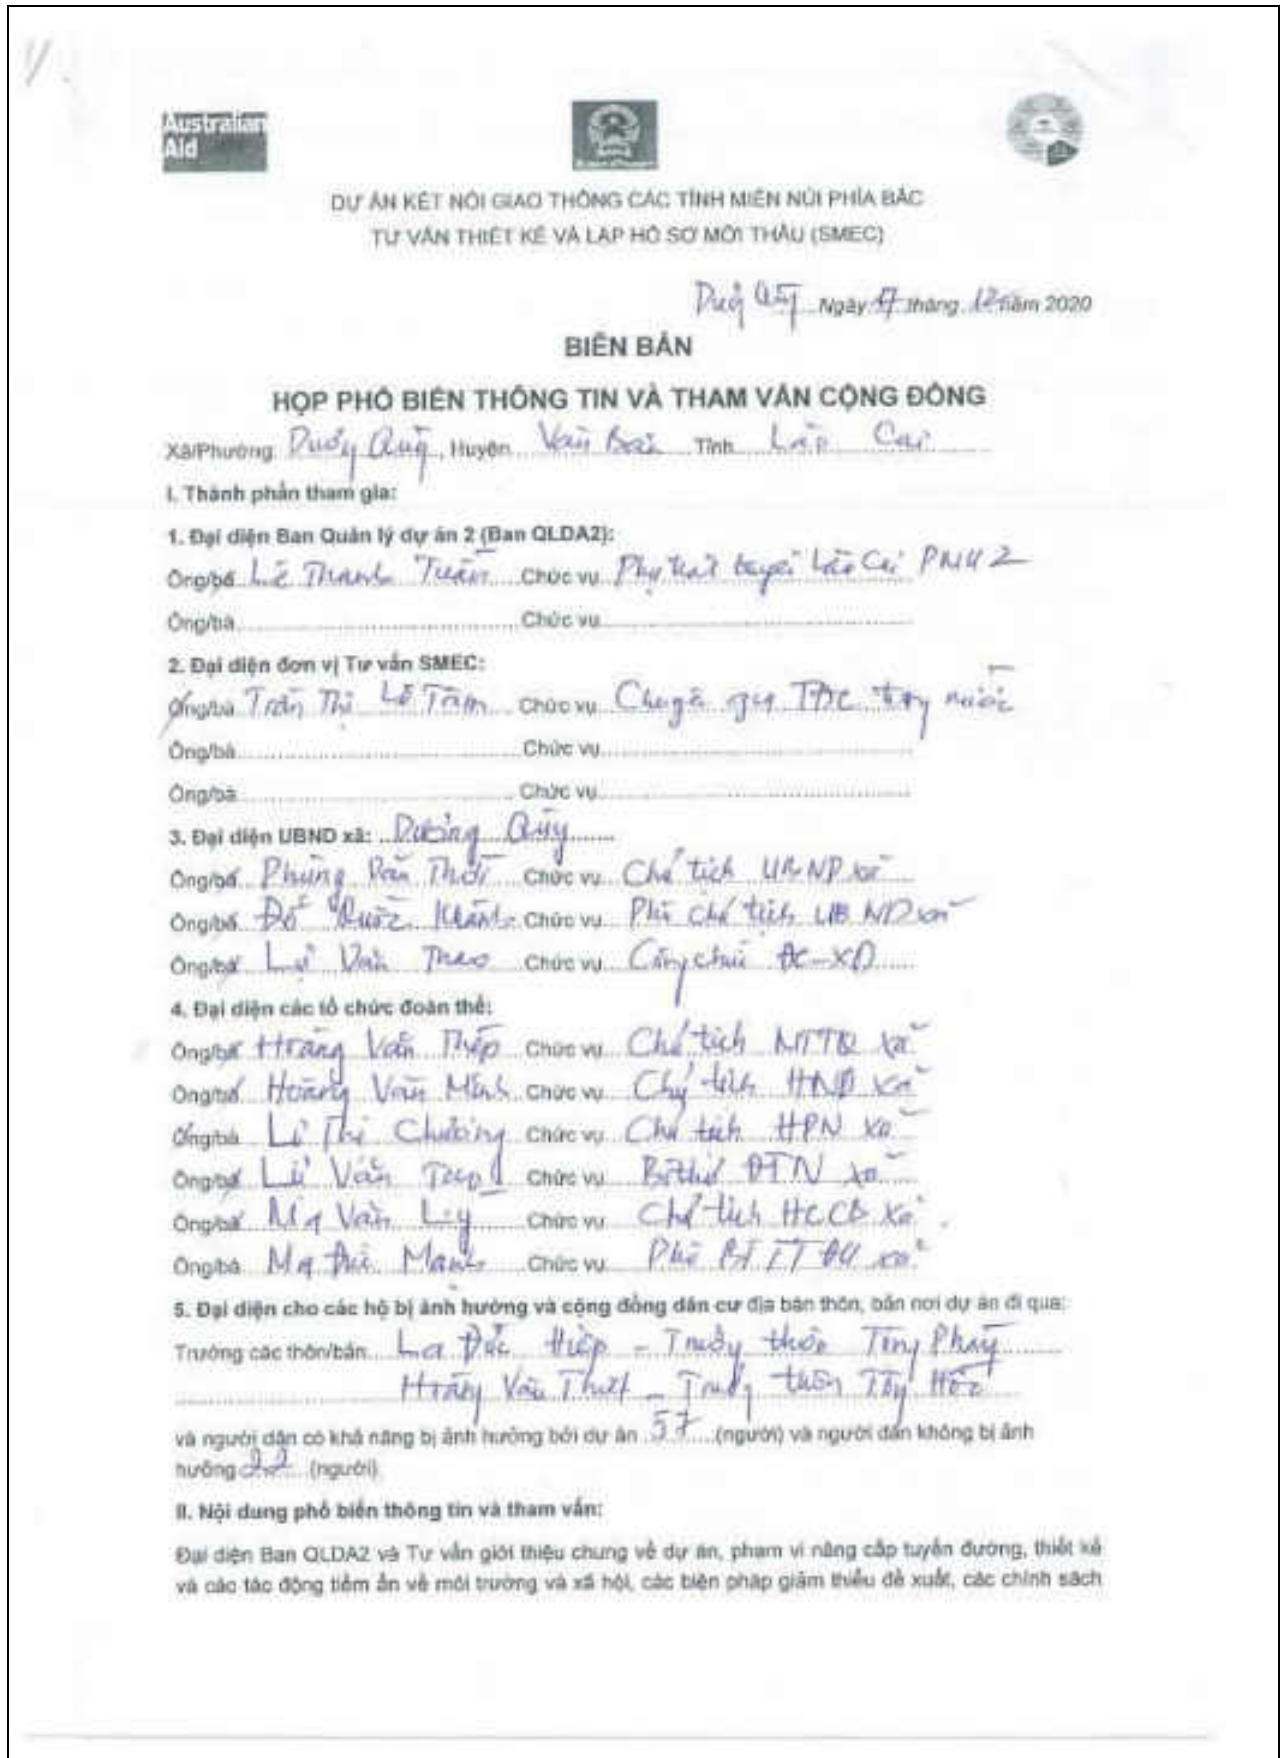 Australian
Aid
DỰ ÁN KẾT NỐI GIAO THÔNG CÁC TỈNH MIỀN NÚI PHÍA BẮC
TƯ VẤN THIẾT KẾ VÀ LẬP HỒ SƠ MỜI THẦU (SMEC)
Ngày 17 tháng 12 năm 2020
BIÊN BẢN
HỌP PHỔ BIẾN THÔNG TIN VÀ THAM VẤN CỘNG ĐỒNG
Xã/Phường Dương Quỳ, Huyện Văn Bàn Tỉnh Lào Cai
I. Thành phần tham gia:
1. Đại diện Ban Quản lý dự án 2 (Ban QLDA2):
Ông/bà Lê Thanh Tuấn Chức vụ Phụ trách tuyến Lào Cai PMU 2
Ông/bà Chức vụ
2. Đại diện đơn vị Tư vấn SMEC:
Ông/bà Trần Thị Lê Tâm Chức vụ Chuyên gia TĐC trong nước
Ông/bà Chức vụ
Ông/bà Chức vụ
3. Đại diện UBND xã: Dương Quỳ
Ông/bà Phùng Văn Thời Chức vụ Chủ tịch UBND xã
Ông/bà Đỗ Quốc Khánh Chức vụ Phó Chủ tịch UBND xã
Ông/bà Văn Chức vụ Công chức ĐC-XD
4. Đại diện các tổ chức đoàn thể:
Ông/bà Hoàng Văn Thép Chức vụ Chủ tịch MTTQ xã
Ông/bà Hoàng Văn Minh Chức vụ Chủ tịch HND xã
Ông/bà Thị Chương Chức vụ Chủ tịch HPN xã
Ông/bà Văn Chức vụ Bí thư ĐTN xã
Ông/bà Ma Văn Lý Chức vụ Chủ tịch HCCB xã
Ông/bà Ma Mạnh Chức vụ Phó BT TT ĐU xã
5. Đại diện cho các hộ bị ảnh hưởng và cộng đồng dân cư địa bàn thôn, bản nơi dự án đi qua:
Trưởng các thôn/bản La Hiệp - Trưởng thôn
Hoàng Văn - Trưởng thôn
và người dân có khả năng bị ảnh hưởng bởi dự án 57 (người) và người dân không bị ảnh
hưởng 22 (người)
II. Nội dung phổ biến thông tin và tham vấn:
Đại diện Ban QLDA2 và Tư vấn giới thiệu chung về dự án, phạm vi nâng cấp tuyến đường, thiết kế
và các tác động tiềm ẩn về môi trường và xã hội, các biện pháp giảm thiểu đề xuất, các chính sách